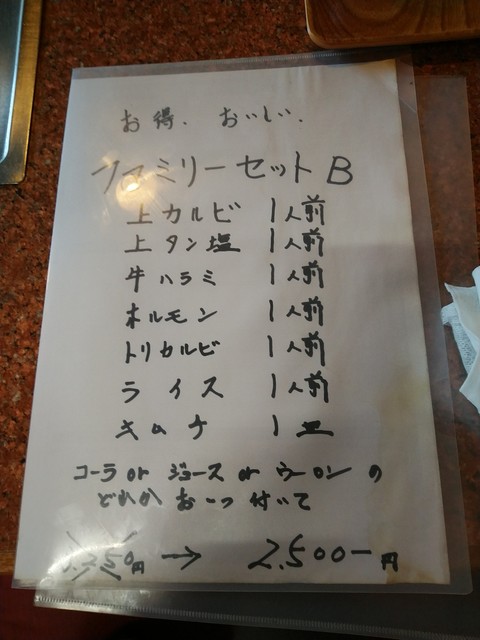 お得、おいしい、
ファミリーセットB
上カルビ 1人前
上タン塩 1人前
牛ハラミ 1人前
ホルモン 1人前
トリカルビ 1人前
ライス 1人前
キムチ 1皿
コーラor ジュース or ウーロン の
どれか お一つ 付いて
→ 2.500ー円